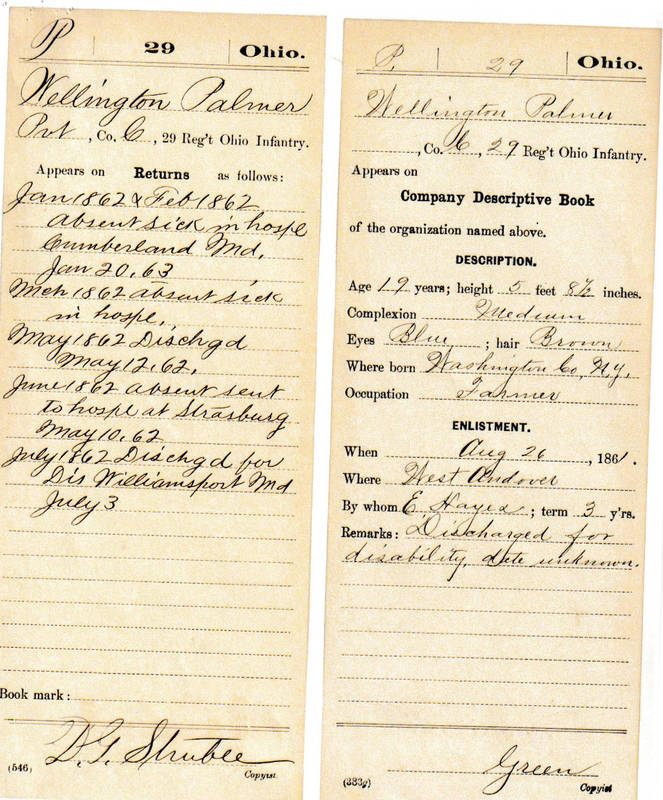 P | 29 | Ohio.
Wellington Palmer
Pvt, Co. C, 29 Reg't Ohio Infantry.
Appears on Returns as follows:
Jan 1862 & Feb 1862
absent sick in hospl
Cumberland Md.
Jan 20, 63
Mch 1862 absent sick
in hospl.
May 1862 Dischgd
May 12, 62.
June 1862 absent sent
to hospl at Strasburg
May 10, 62
July 1862 Dischgd for
Dis Williamsport Md
July 3
Book mark:
(546)
Copyist.
P. | 29 | Ohio.
Wellington Palmer
, Co. C, 29 Reg't Ohio Infantry.
Appears on
Company Descriptive Book
of the organization named above.
DESCRIPTION.
Age 19 years; height 5 feet 8½ inches.
Complexion Medium
Eyes Blue; hair Brown
Where born Washington Co, N.Y.
Occupation Farmer
ENLISTMENT.
When Aug 26, 1861.
Where West Andover
By whom E. Hayes; term 3 y'rs.
Remarks: Discharged for
disability, date unknown.
Green
(383g) Copyist